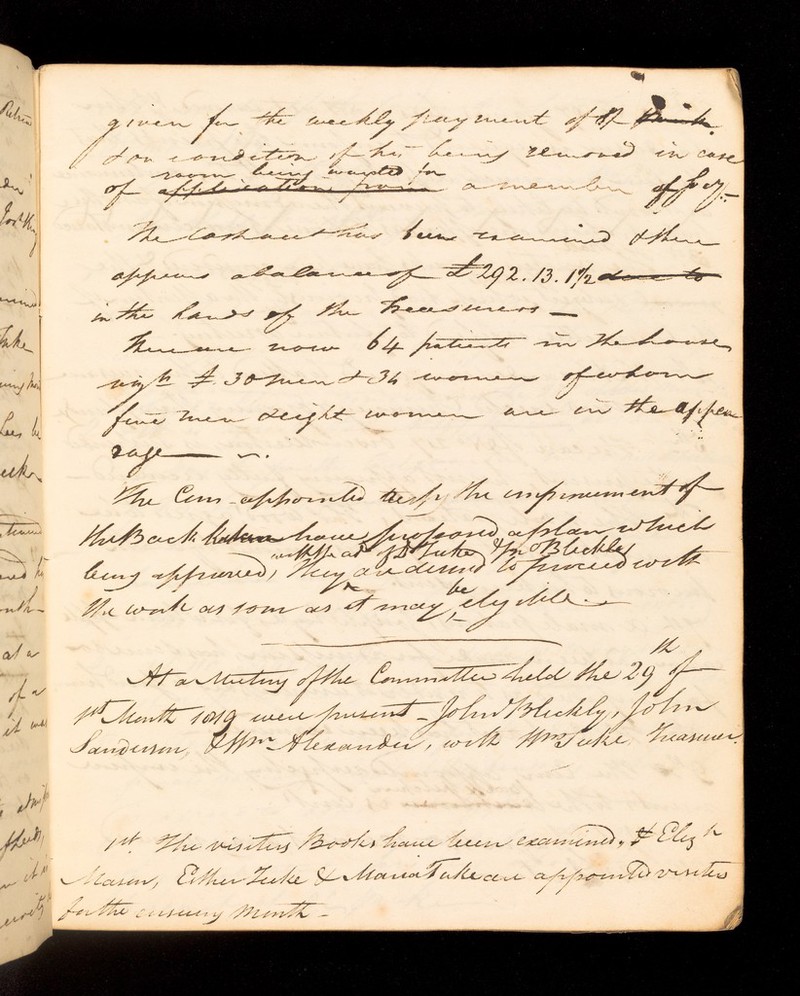 given for the weekly payment of
& on condition of his being removed in case
room being wanted for
of application from a member of Socy.
The Cash acct has been examined & there
appears a balance of £292.13.1½ due to
in the hands of the Treasurers —
There are now 64 patients in the house
30 men & 34 women of whom
five men & eight women are in the appen
rage — ~.
The Com appointed respg the improvement of
the Back have proposed a plan which
with the aid of Tuke & Jn Bleckly
being approved, they are desired to proceed with
be
the work as soon as it may eligible. —
At a Meeting of the Committee held the 29th of
1st Month 1819 were present — John Bleckly, John
Sanderson, & Wm Alexander, with Wm Tuke, Treasurer.
1st. The visiters Books have been examined, & Elizh
Mason, Esther Tuke & Maria Tuke are appointed visiters
for the ensuing Month —